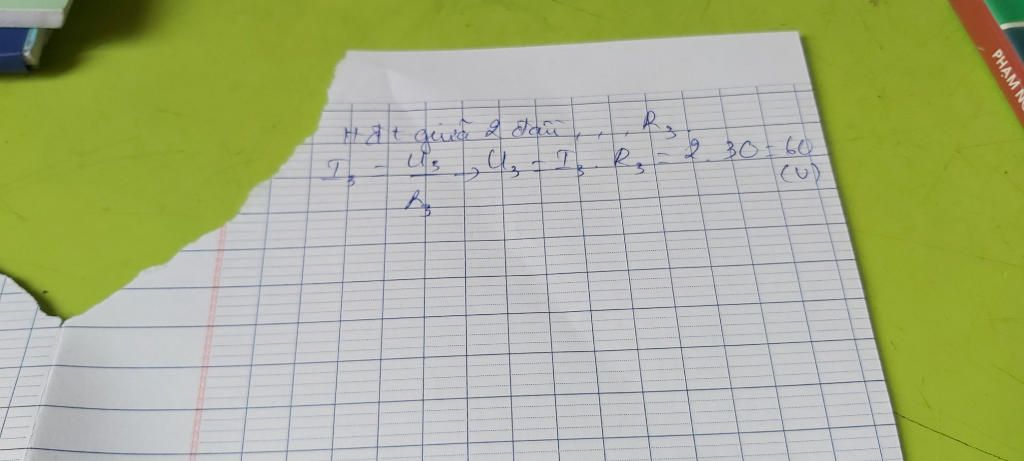 Hđt giữa 2 đầu . . . R₃
I₃ = U₃/R₃ → U₃ = I₃ . R₃ = 2 . 30 = 60
(V)
PHẠM N